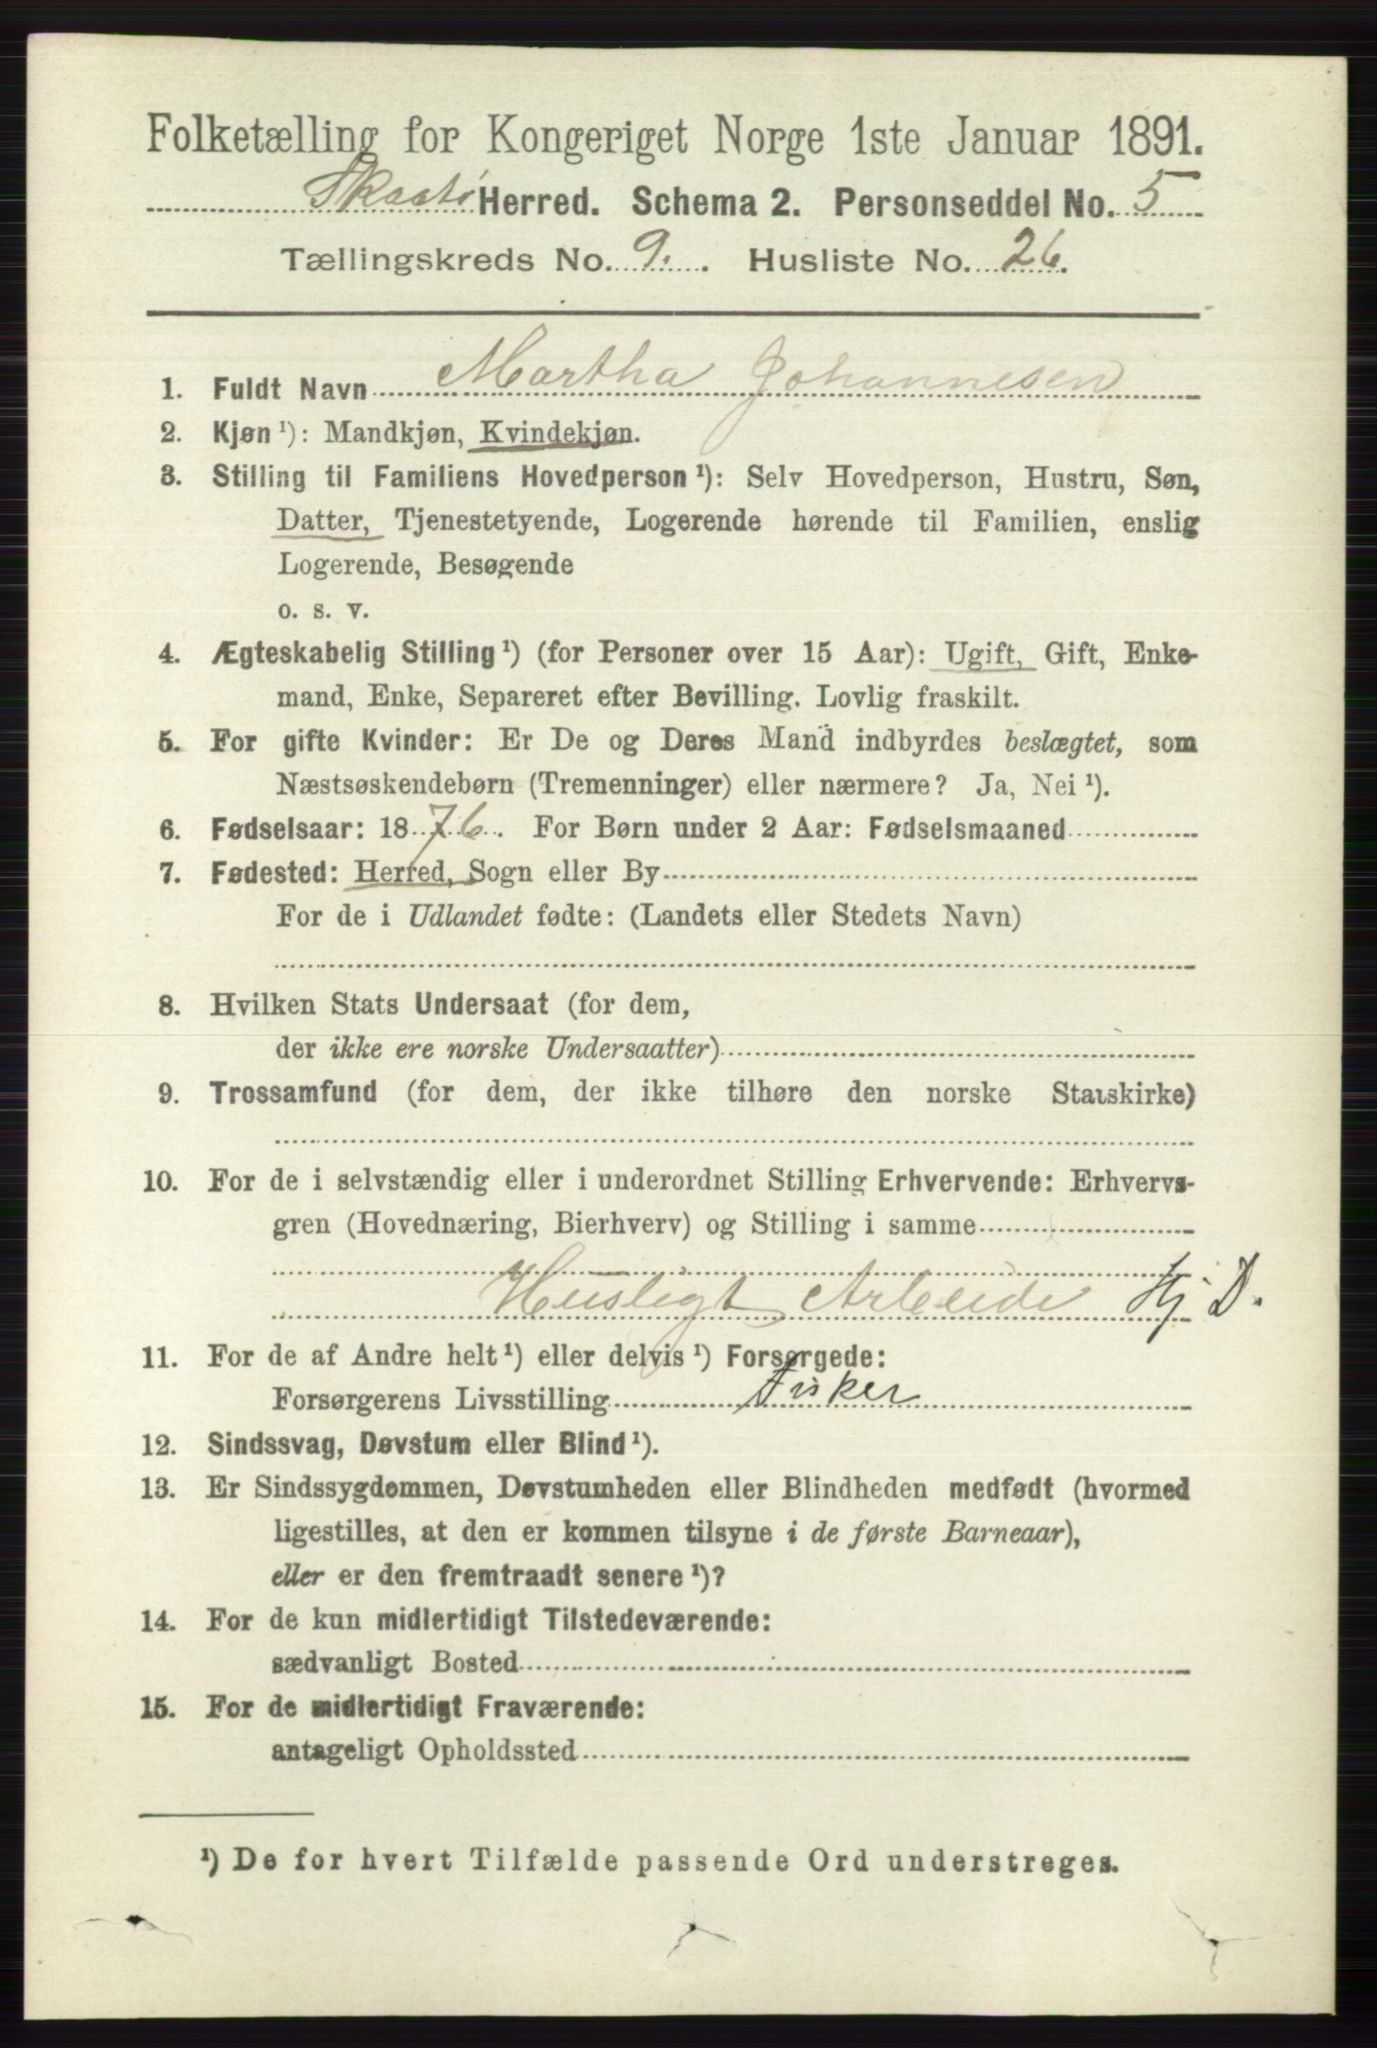 Folketælling for Kongeriget Norge 1ste Januar 1891.
Skaatø Herred. Schema 2. Personseddel No. 5
Tællingskreds No. 9. Husliste No. 26.
1. Fuldt Navn Martha Johannesen
2. Kjøn ¹): Mandkjøn, Kvindekjøn.
3. Stilling til Familiens Hovedperson ¹): Selv Hovedperson, Hustru, Søn,
Datter, Tjenestetyende, Logerende hørende til Familien, enslig
Logerende, Besøgende
o. s. v.
4. Ægteskabelig Stilling ¹) (for Personer over 15 Aar): Ugift, Gift, Enke-
mand, Enke, Separeret efter Bevilling. Lovlig fraskilt.
5. For gifte Kvinder: Er De og Deres Mand indbyrdes beslægtet, som
Næstsøskendebørn (Tremenninger) eller nærmere? Ja, Nei ¹).
6. Fødselsaar: 1876. For Børn under 2 Aar: Fødselsmaaned
7. Fødested: Herred, Sogn eller By
For de i Udlandet fødte: (Landets eller Stedets Navn)
8. Hvilken Stats Undersaat (for dem,
der ikke ere norske Undersaatter)
9. Trossamfund (for dem, der ikke tilhøre den norske Statskirke)
10. For de i selvstændig eller i underordnet Stilling Erhvervende: Erhvervs-
gren (Hovednæring, Bierhverv) og Stilling i samme
Husligt Arbeide Hj D.
11. For de af Andre helt ¹) eller delvis ¹) Forsørgede:
Forsørgerens Livsstilling Fisker
12. Sindssvag, Døvstum eller Blind ¹).
13. Er Sindssygdommen, Døvstumheden eller Blindheden medfødt (hvormed
ligestilles, at den er kommen tilsyne i de første Barneaar),
eller er den fremtraadt senere ¹)?
14. For de kun midlertidigt Tilstedeværende:
sædvanligt Bosted
15. For de midlertidigt Fraværende:
antageligt Opholdssted
¹) De for hvert Tilfælde passende Ord understreges.